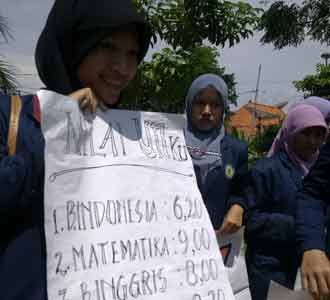 NILAI UNKU
1. BINDONESIA : 6,20
2. MATEMATIKA : 9,00
3. BINGGRIS : 8,00
8,20